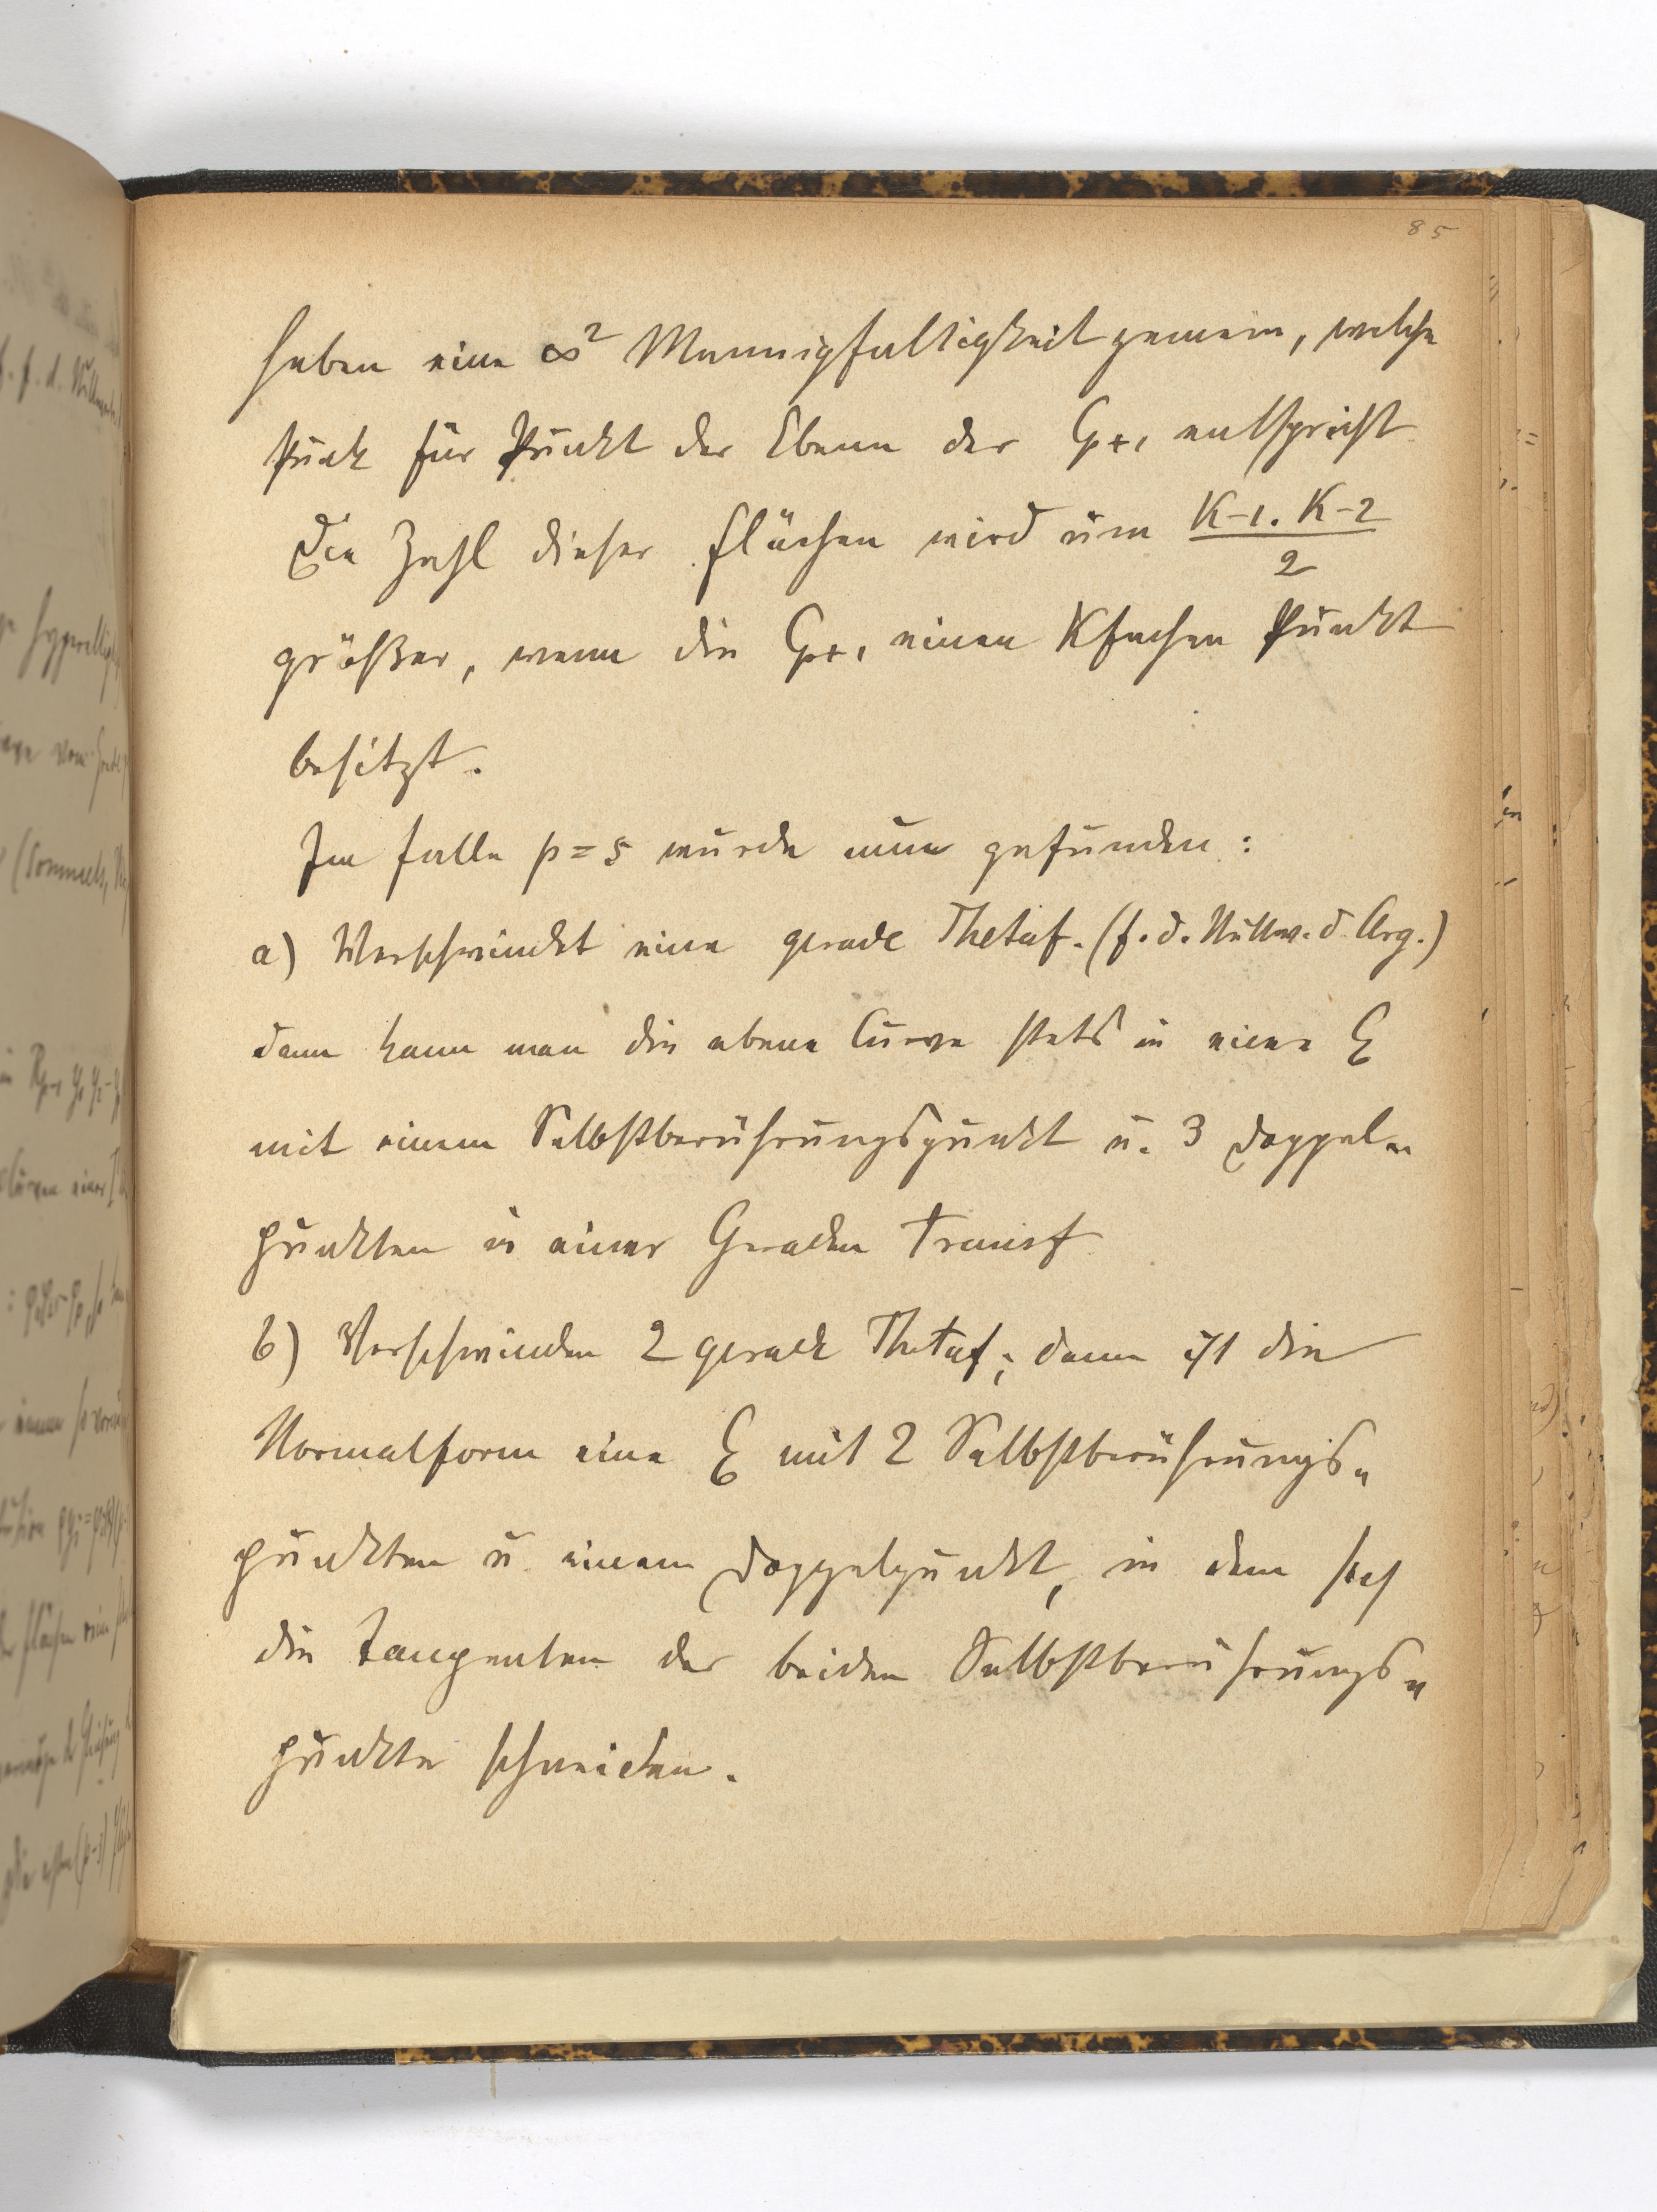 85
haben eine ∞² Mannigfaltigkeit gemein, welche
Punkt für Punkt der Ebene der Cp+1 entspricht
Die Zahl dieser Flächen wird um K-1. K-2
2
größer, wenn die Cp+1 einen Kfachen Punkt
besitzt.
Im Falle p=5 wurde nun gefunden:
a) Verschwindet eine gerade Thetaf. (f. d. Nullw. d. Arg.)
dann kann man die ebene Curve stets in eine C6
mit einem Selbstberührungspunkt u. 3 Doppel-
punkten in einer Geraden transf.
b) Verschwinden 2 gerade Thetaf., dann ist die
Normalform eine C6 mit 2 Selbstberührungs-
punkten u. einem Doppelpunkt, in dem sich
die Tangenten der beiden Selbstberührungs-
punkte schneiden.